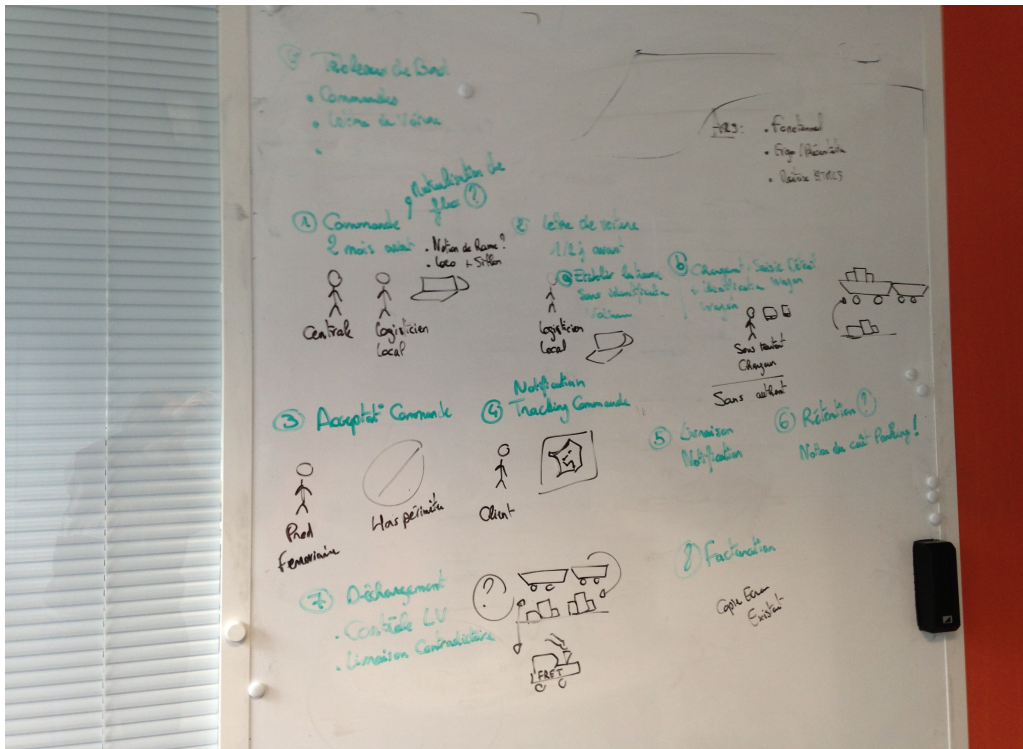 9 Tableau de Bord
• Commandes
• Lettre de Voiture
•
ARS: • Fonctionnel
• Ergo / Présentation
• HTML5
Mutualisation de
flux ?
1 Commande
2 mois avant
• Notion de Rame ?
• Loco + Sillon
Centrale
Logisticien
Local
2 Lettre de voiture
1/2 j avant
a Etablir la trame
Sans identification
Logisticien
Local
b Chargement : Saisie
+ identification wagon
wagon
Sous traitant
Chargeur
Sans
3 Acceptat° Commande
Prod
Ferroviaire
Hors périmètre
4 Notification
Tracking Commande
Client
5 Livraison
Notification
6 Rétention ?
Notion de coût Parking !
7 Déchargement
• Contrôle LV
• Livraison Contradictoire
?
FRET
8 Facturation
Copie Ecran
Existant